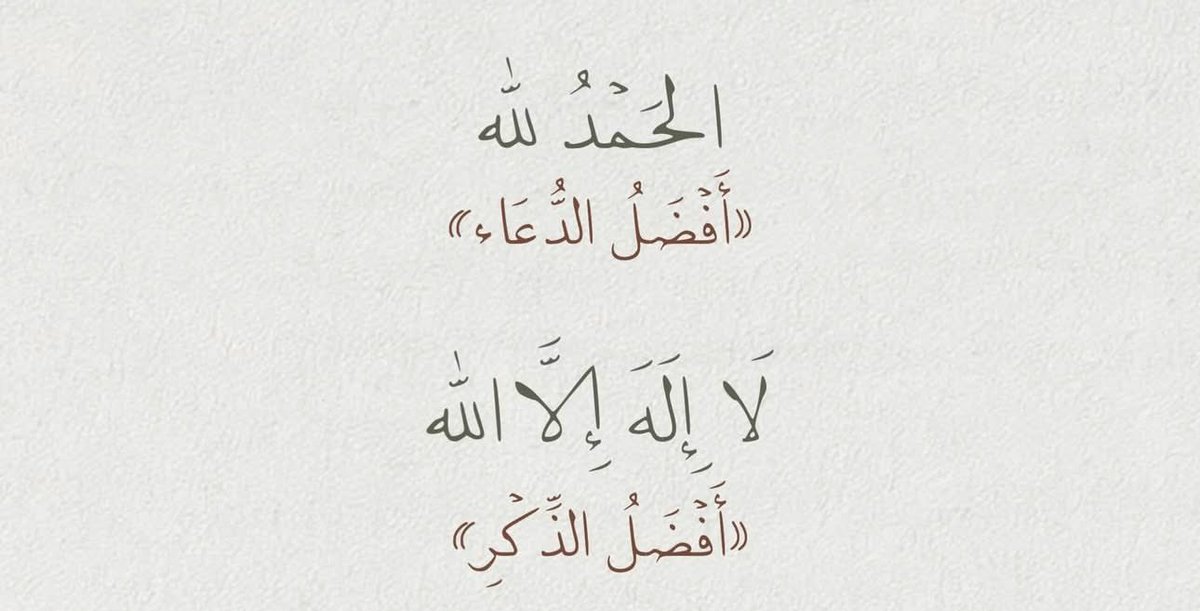 الحَمْدُ لله
«أَفْضَلُ الدُّعَاء»
لَا إِلَهَ إِلَّا الله
«أَفْضَلُ الذِّكْرِ»